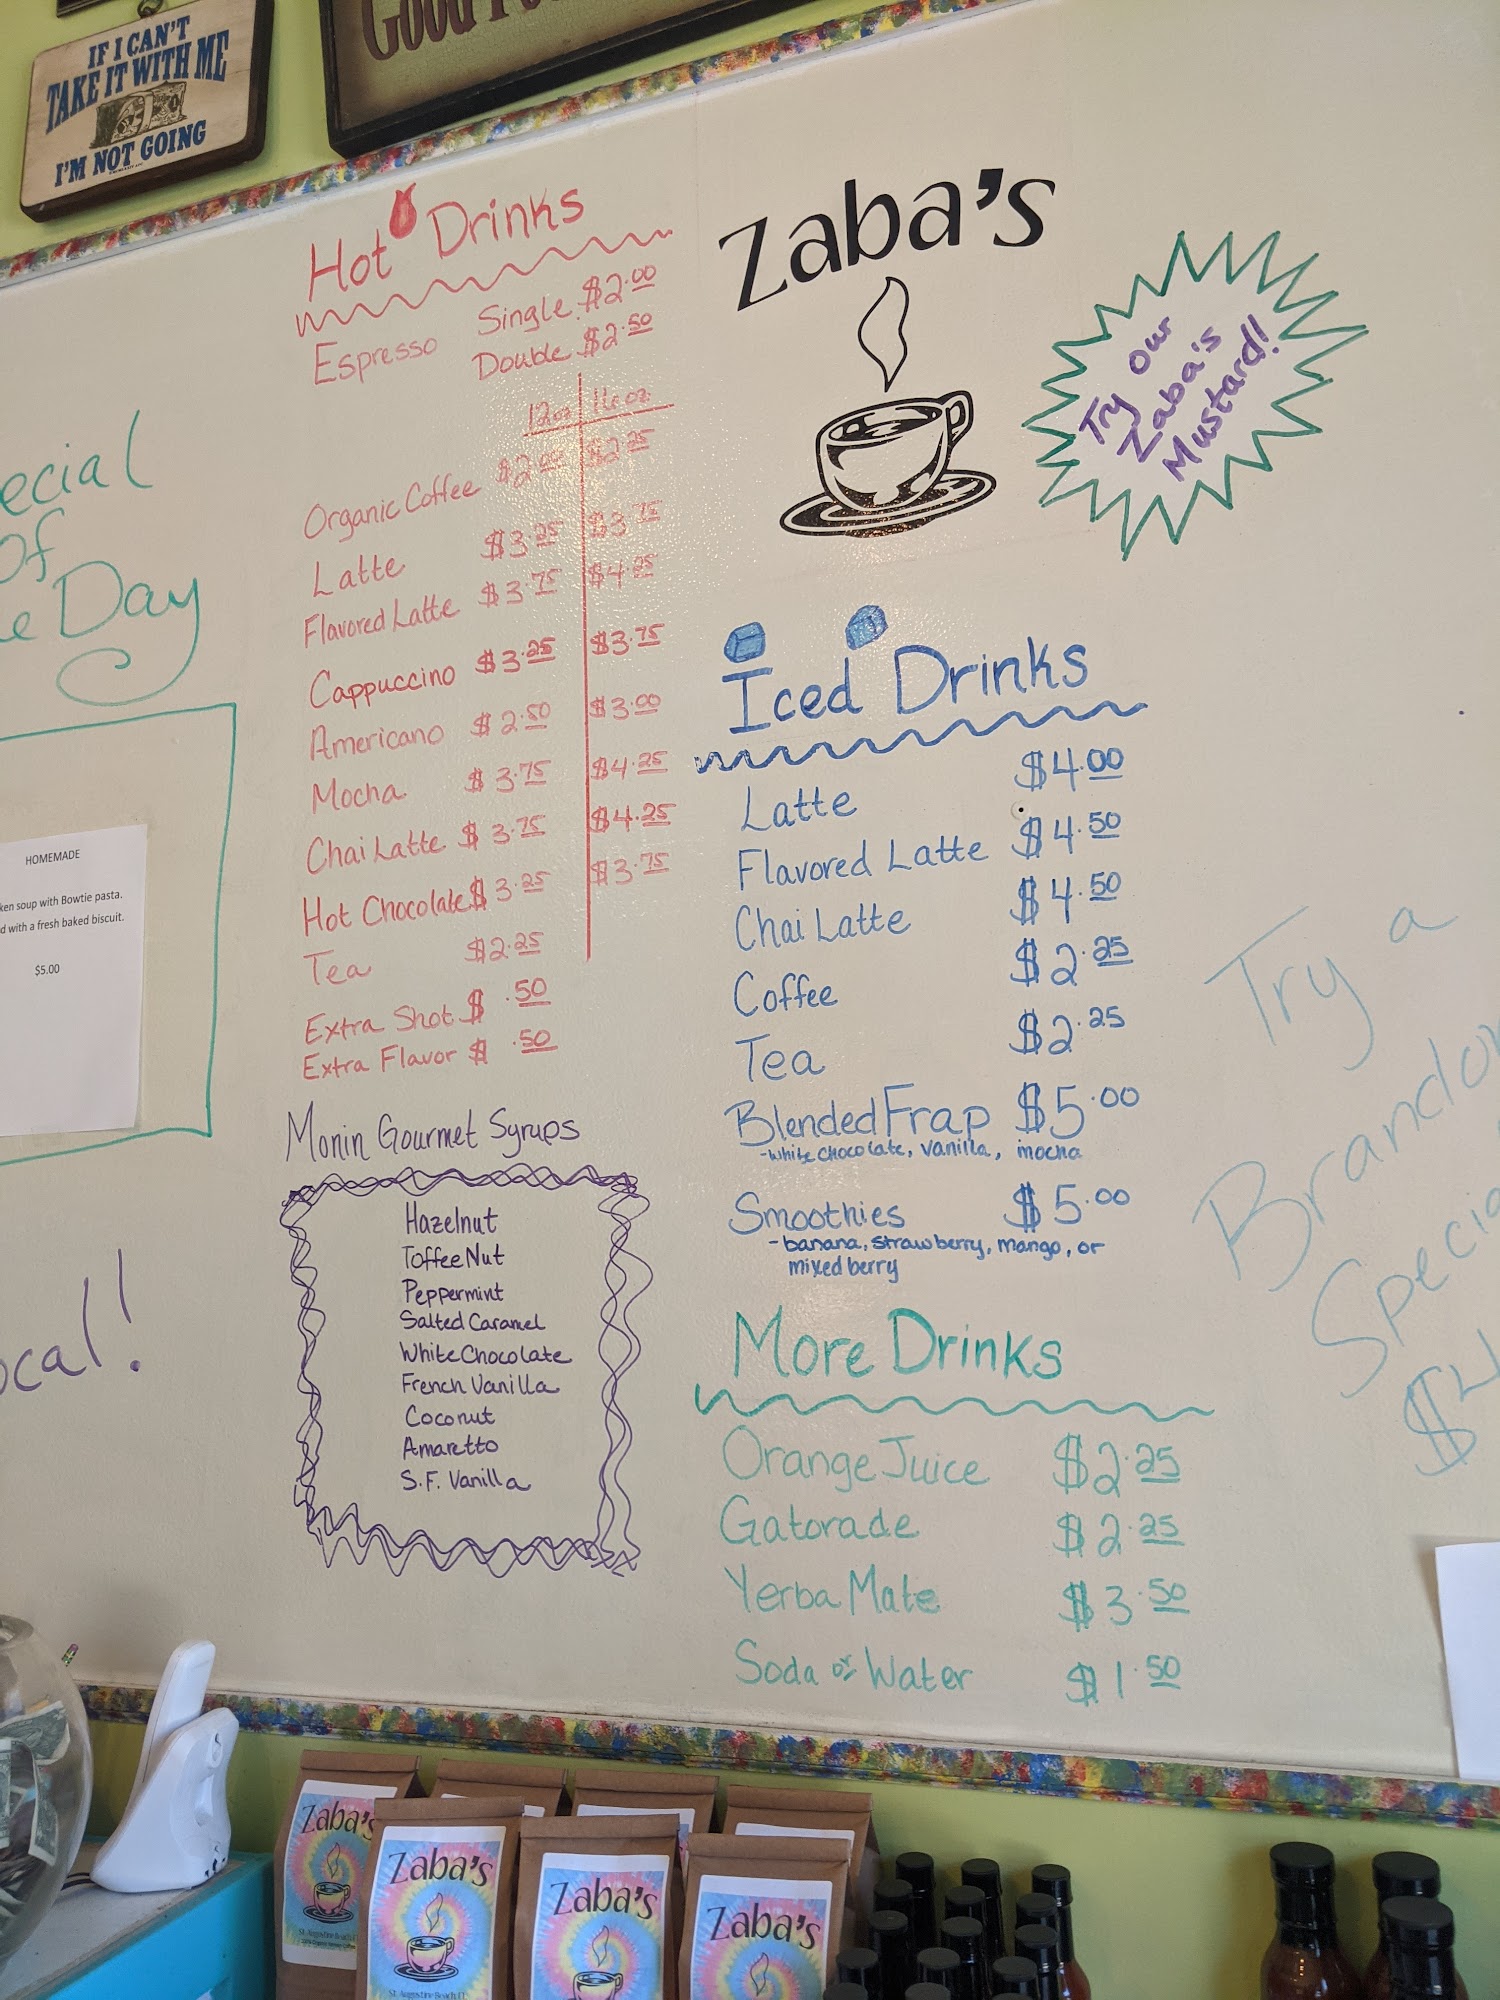 IF I CAN'T
TAKE IT WITH ME
I'M NOT GOING
Good
Zaba's
Try our
Zaba's
Mustard!
ecial
Of
e Day
HOMEMADE
ken soup with Bowtie pasta.
d with a fresh baked biscuit.
$5.00
ocal!!
Hot Drinks
Espresso Single $2.00
Double $2.50
12oz 16oz
Organic Coffee $2.00 $2.25
Latte $3.25 $3.75
Flavored Latte $3.75 $4.25
Cappuccino $3.25 $3.75
Americano $2.50 $3.00
Mocha $3.75 $4.25
Chai Latte $3.75 $4.25
Hot Chocolate $3.25 $3.75
Tea $2.25
Extra Shot $ .50
Extra Flavor $ .50
Monin Gourmet Syrups
Hazelnut
Toffee Nut
Peppermint
Salted Caramel
White Chocolate
French Vanilla
Coconut
Amaretto
S.F. Vanilla
Iced Drinks
Latte $4.00
Flavored Latte $4.50
Chai Latte $4.50
Coffee $2.25
Tea $2.25
Blended Frap $5.00
-white chocolate, vanilla, mocha
Smoothies $5.00
-banana, strawberry, mango, or
mixed berry
More Drinks
Orange Juice $2.25
Gatorade $2.25
Yerba Mate $3.50
Soda or Water $1.50
Try a
Brandon
Specia
$4
Zaba's
Zaba's
Zaba's
Zaba's
St. Augustine Beach, FL